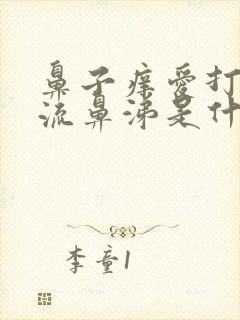 鼻子痒爱打
流鼻涕是什
李童1